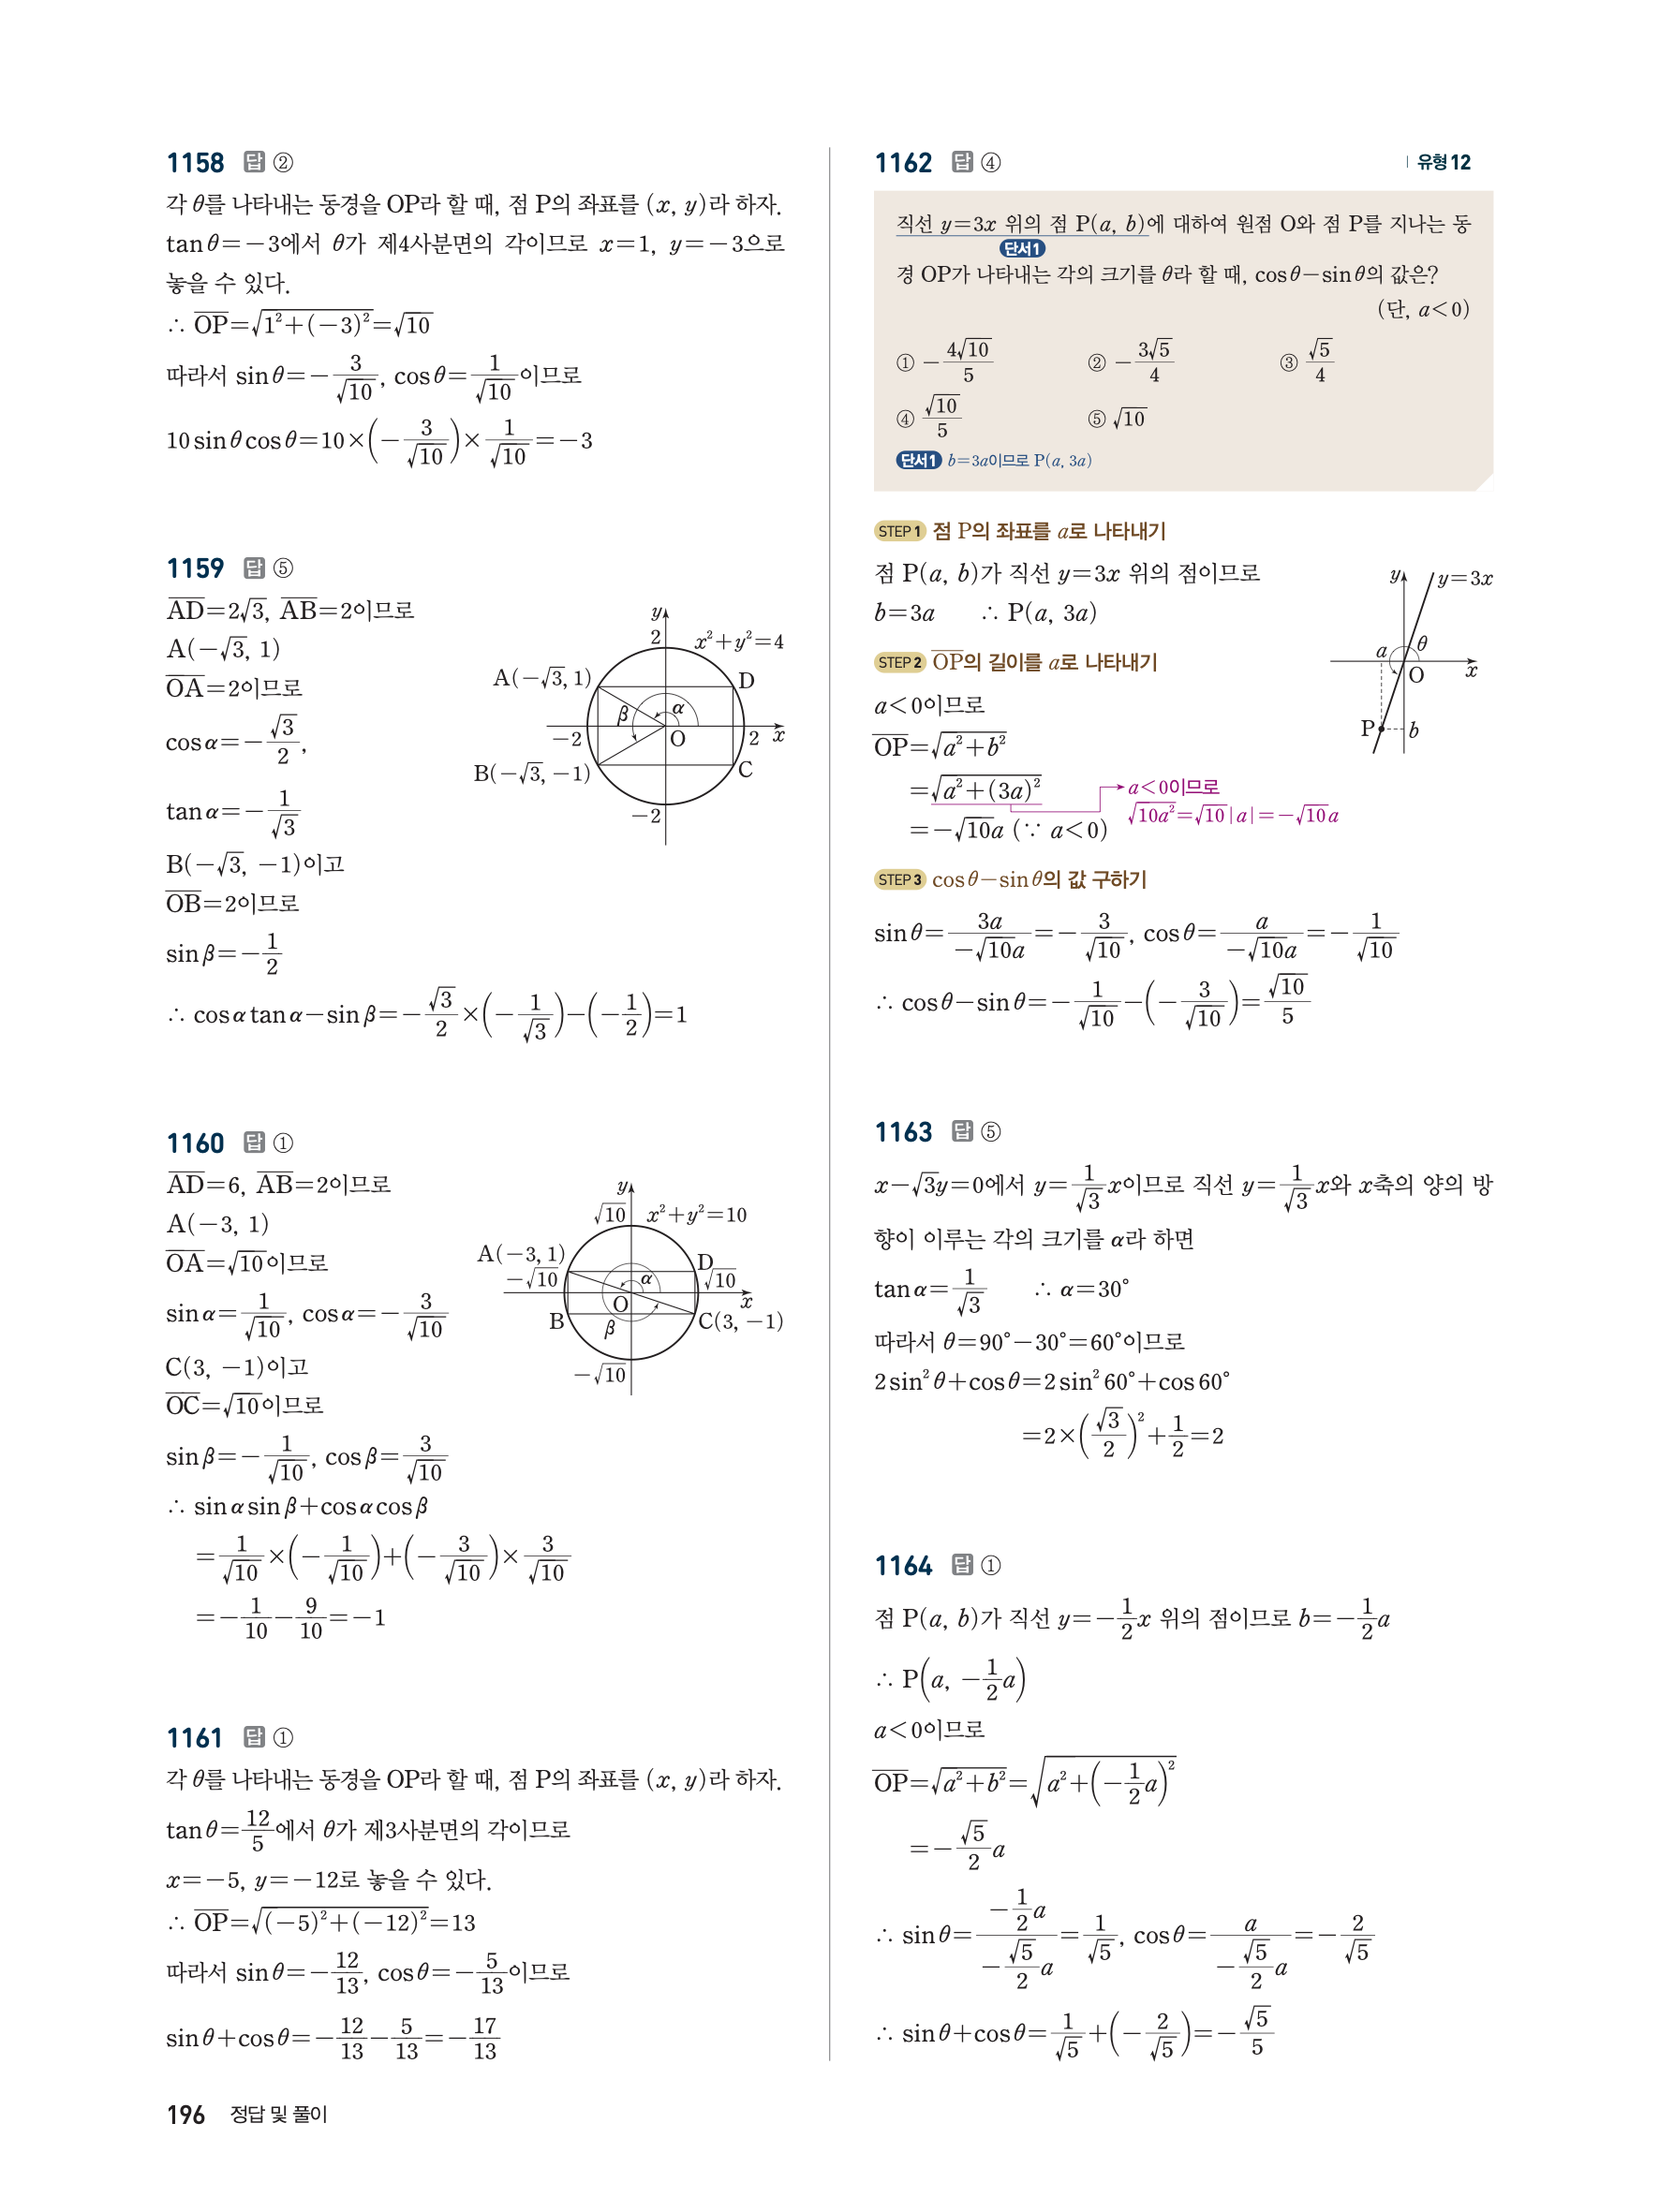 1158 답 ②
각 θ를 나타내는 동경을 OP라 할 때, 점 P의 좌표를 (x, y)라 하자.
tan θ=−3에서 θ가 제4사분면의 각이므로 x=1, y=−3으로
놓을 수 있다.
∴ \overline{OP}=√(1²+(−3)²)=√10
따라서 sin θ=−3/√10, cos θ=1/√10이므로
10 sin θ cos θ=10×(−3/√10)×1/√10=−3
1159 답 ⑤
\overline{AD}=2√3, \overline{AB}=2이므로
A(−√3, 1)
\overline{OA}=2이므로
cos α=−√3/2,
tan α=−1/√3
B(−√3, −1)이고
\overline{OB}=2이므로
sin β=−1/2
∴ cos α tan α−sin β=−√3/2×(−1/√3)−(−1/2)=1
y
2
x²+y²=4
A(−√3, 1)
D
β
α
−2
O
2
x
B(−√3, −1)
C
−2
1160 답 ①
\overline{AD}=6, \overline{AB}=2이므로
A(−3, 1)
\overline{OA}=√10이므로
sin α=1/√10, cos α=−3/√10
C(3, −1)이고
\overline{OC}=√10이므로
sin β=−1/√10, cos β=3/√10
∴ sin α sin β+cos α cos β
=1/√10×(−1/√10)+(−3/√10)×3/√10
=−1/10−9/10=−1
y
√10
x²+y²=10
A(−3, 1)
D
−√10
α
√10
O
x
B
β
C(3, −1)
−√10
1161 답 ①
각 θ를 나타내는 동경을 OP라 할 때, 점 P의 좌표를 (x, y)라 하자.
tan θ=12/5에서 θ가 제3사분면의 각이므로
x=−5, y=−12로 놓을 수 있다.
∴ \overline{OP}=√((−5)²+(−12)²)=13
따라서 sin θ=−12/13, cos θ=−5/13이므로
sin θ+cos θ=−12/13−5/13=−17/13
1162 답 ④
유형 12
직선 y=3x 위의 점 P(a, b)에 대하여 원점 O와 점 P를 지나는 동
단서1
경 OP가 나타내는 각의 크기를 θ라 할 때, cos θ−sin θ의 값은?
(단, a<0)
① −4√10/5 ② −3√5/4 ③ √5/4
④ √10/5 ⑤ √10
단서1 b=3a이므로 P(a, 3a)
STEP 1 점 P의 좌표를 a로 나타내기
점 P(a, b)가 직선 y=3x 위의 점이므로
b=3a ∴ P(a, 3a)
STEP 2 \overline{OP}의 길이를 a로 나타내기
a<0이므로
\overline{OP}=√(a²+b²)
=√(a²+(3a)²)
=−√10a (∵ a<0)
a<0이므로
√10a²=√10|a|=−√10a
y
y=3x
θ
a
O
x
P
b
STEP 3 cos θ−sin θ의 값 구하기
sin θ=3a/(−√10a)=−3/√10, cos θ=a/(−√10a)=−1/√10
∴ cos θ−sin θ=−1/√10−(−3/√10)=√10/5
1163 답 ⑤
x−√3y=0에서 y=1/√3 x이므로 직선 y=1/√3 x와 x축의 양의 방
향이 이루는 각의 크기를 α라 하면
tan α=1/√3 ∴ α=30°
따라서 θ=90°−30°=60°이므로
2 sin² θ+cos θ=2 sin² 60°+cos 60°
=2×(√3/2)²+1/2=2
1164 답 ①
점 P(a, b)가 직선 y=−1/2 x 위의 점이므로 b=−1/2 a
∴ P(a, −1/2 a)
a<0이므로
\overline{OP}=√(a²+b²)=√(a²+(−1/2 a)²)
=−√5/2 a
∴ sin θ=(−1/2 a)/(−√5/2 a)=1/√5, cos θ=a/(−√5/2 a)=−2/√5
∴ sin θ+cos θ=1/√5+(−2/√5)=−√5/5
196 정답 및 풀이